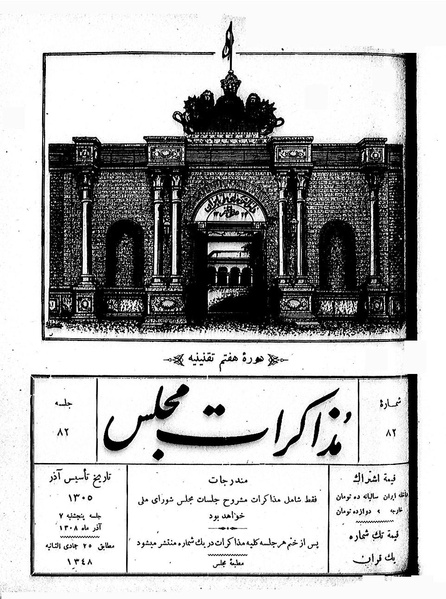 دورهٔ هفتم تقنینیه
شمارهٔ
۸۲
مذاکرات مجلس
جلسه
۸۲
قیمة اشتراک
ایران سالیانه ده تومان
خارجه « دوازده تومان
قیمة تک شماره
یک قران
مندرجات
فقط شامل مذاکرات مشروح جلسات مجلس شورای ملی
خواهد بود
پس از ختم هر جلسه کلیه مذاکرات در یک شماره منتشر میشود
مطبعهٔ مجلس
تاریخ تأسیس آذر
۱۳۰۵
جلسه پنجشنبه ۷
آذر ماه ۱۳۰۸
مطابق ۲۵ جمادی الثانیه
۱۳۴۸